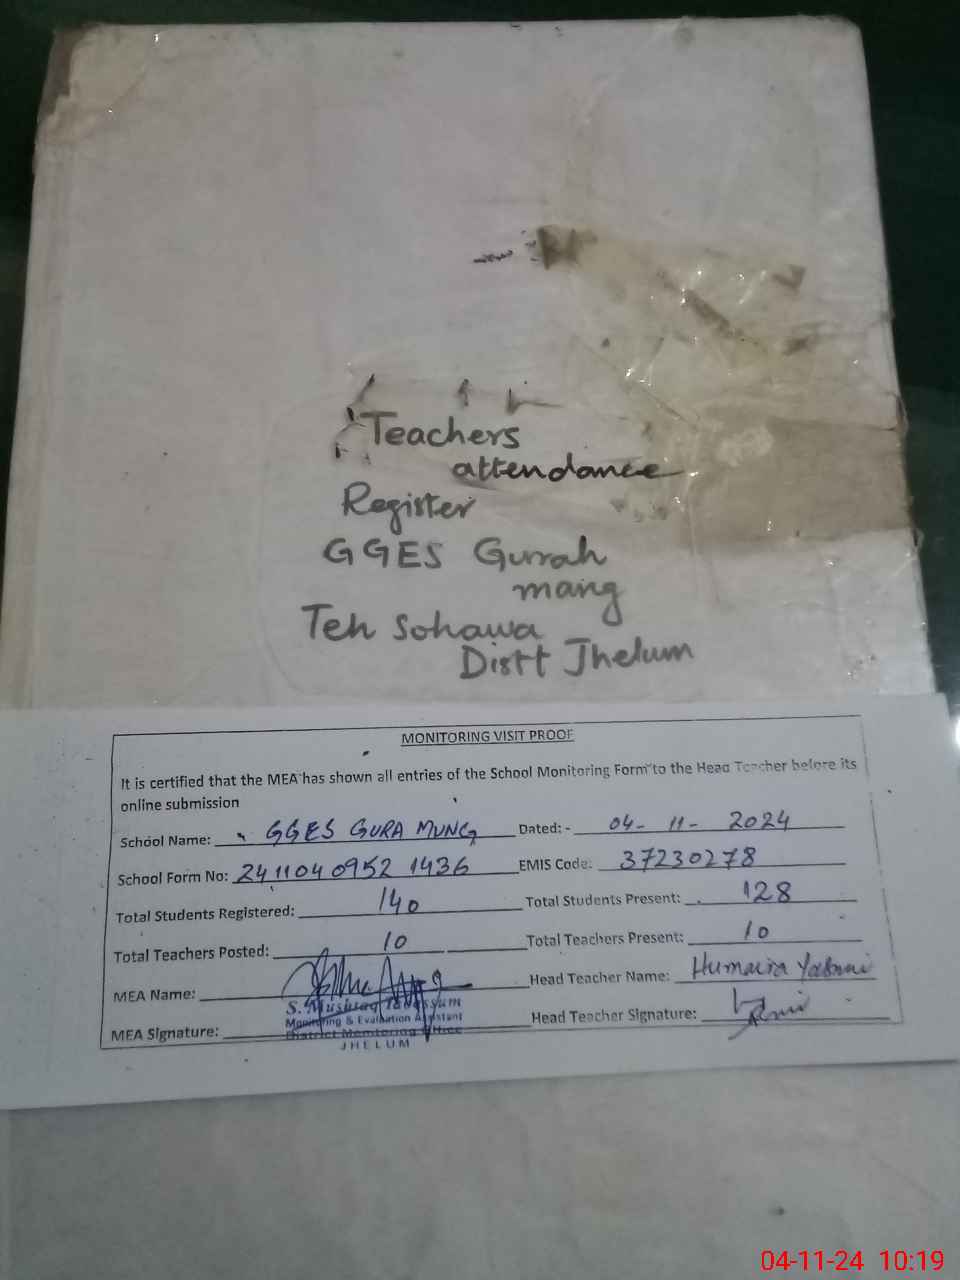 Teachers
attendance
Register
GGES Gurrah
mang
Teh Sohawa
Distt Jhelum
MONITORING VISIT PROOF
It is certified that the MEA has shown all entries of the School Monitoring Form to the Head Teacher before its
online submission
School Name: GGES GURA MUNG Dated: - 04-11-2024
School Form No: 24110409521436 EMIS Code: 37230278
Total Students Registered: 140 Total Students Present: 128
Total Teachers Posted: 10 Total Teachers Present: 10
MEA Name: Head Teacher Name: Humaira
S. Mushtaq Tabassum
Monitoring & Evaluation Assistant
MEA Signature: Head Teacher Signature:
District Monitoring Office
JHELUM
04-11-24 10:19